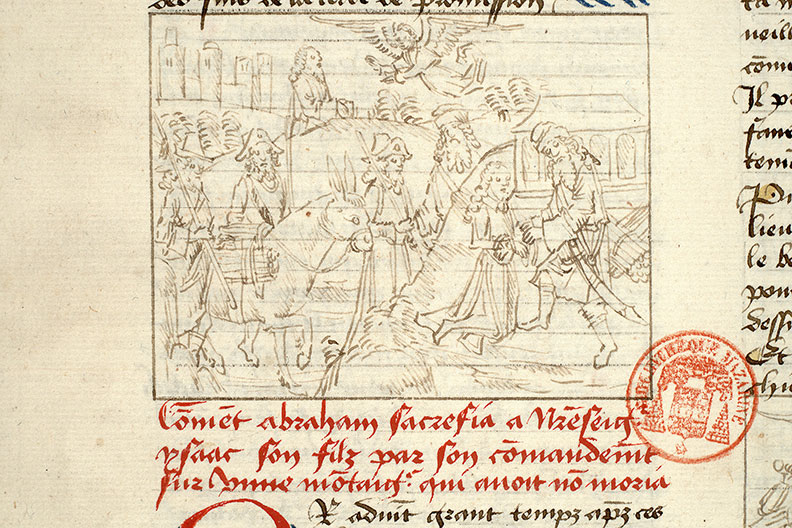 des filz de de promission
Com̃ent abraham sacrefia a nr̃e seigr
ysaac son filz par son com̃andemẽt
sur vnne mõtaigr̃ qui auoit nõ moria
Or aduint grant tempz apz̃ ces
ta m
veill
com̃
Il pr
fanc
tem
Pu
lieu
le be
pou
dessu
Et
chie
BIBLIOTHEQUE MAZARINE